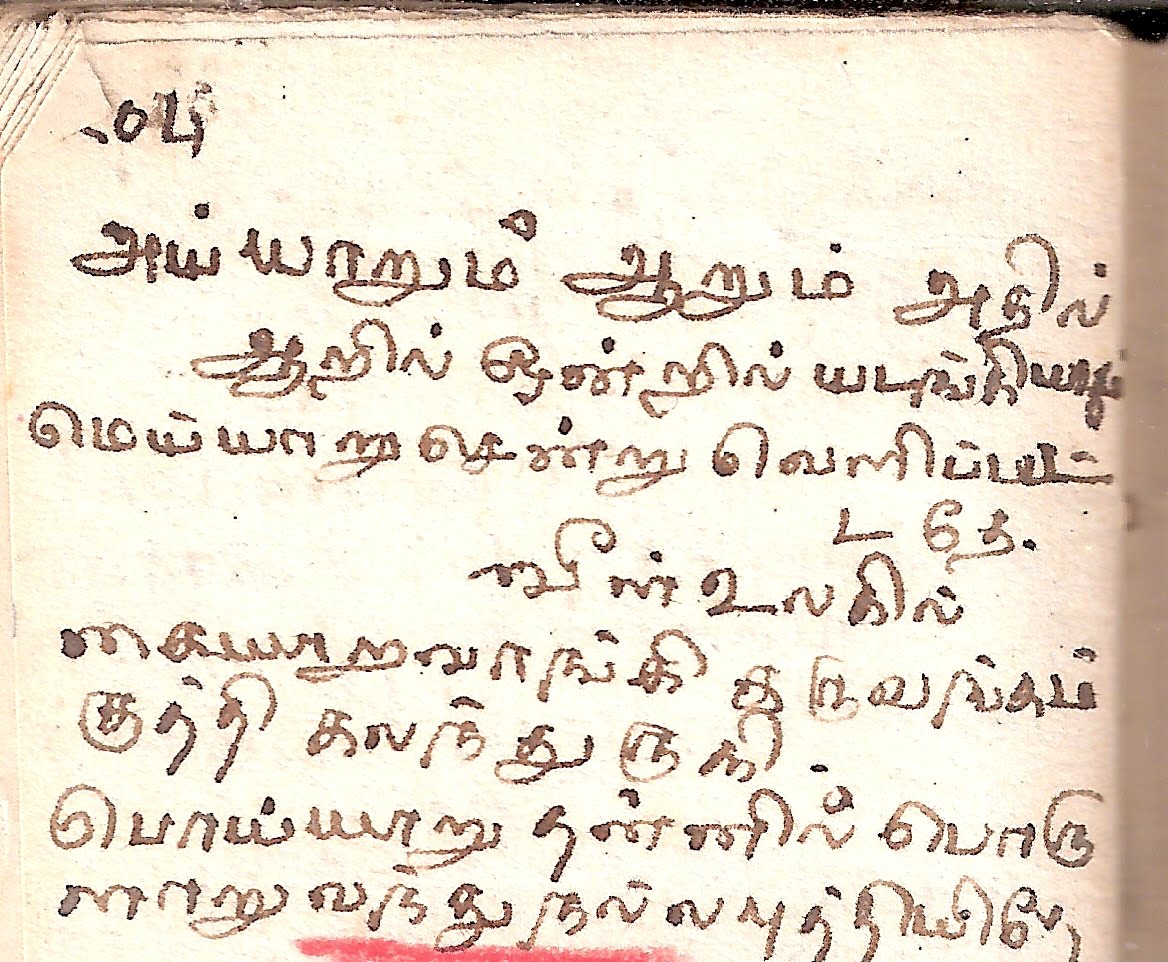 அய்யாறும் ஆறும் அதில்
ஆறில் ஒன்றில் யடங்கியாறு
மெய்யாறு சென்று வெளிப்பட்
டதே.
வீன் உலகில்
கையாறவாங்கி கருவங்கம்
குத்தி கலந்துருகி.
பொய்யாறு தன்னில் பொரு
ளாறு வந்து நல்ல புத்தியிதே